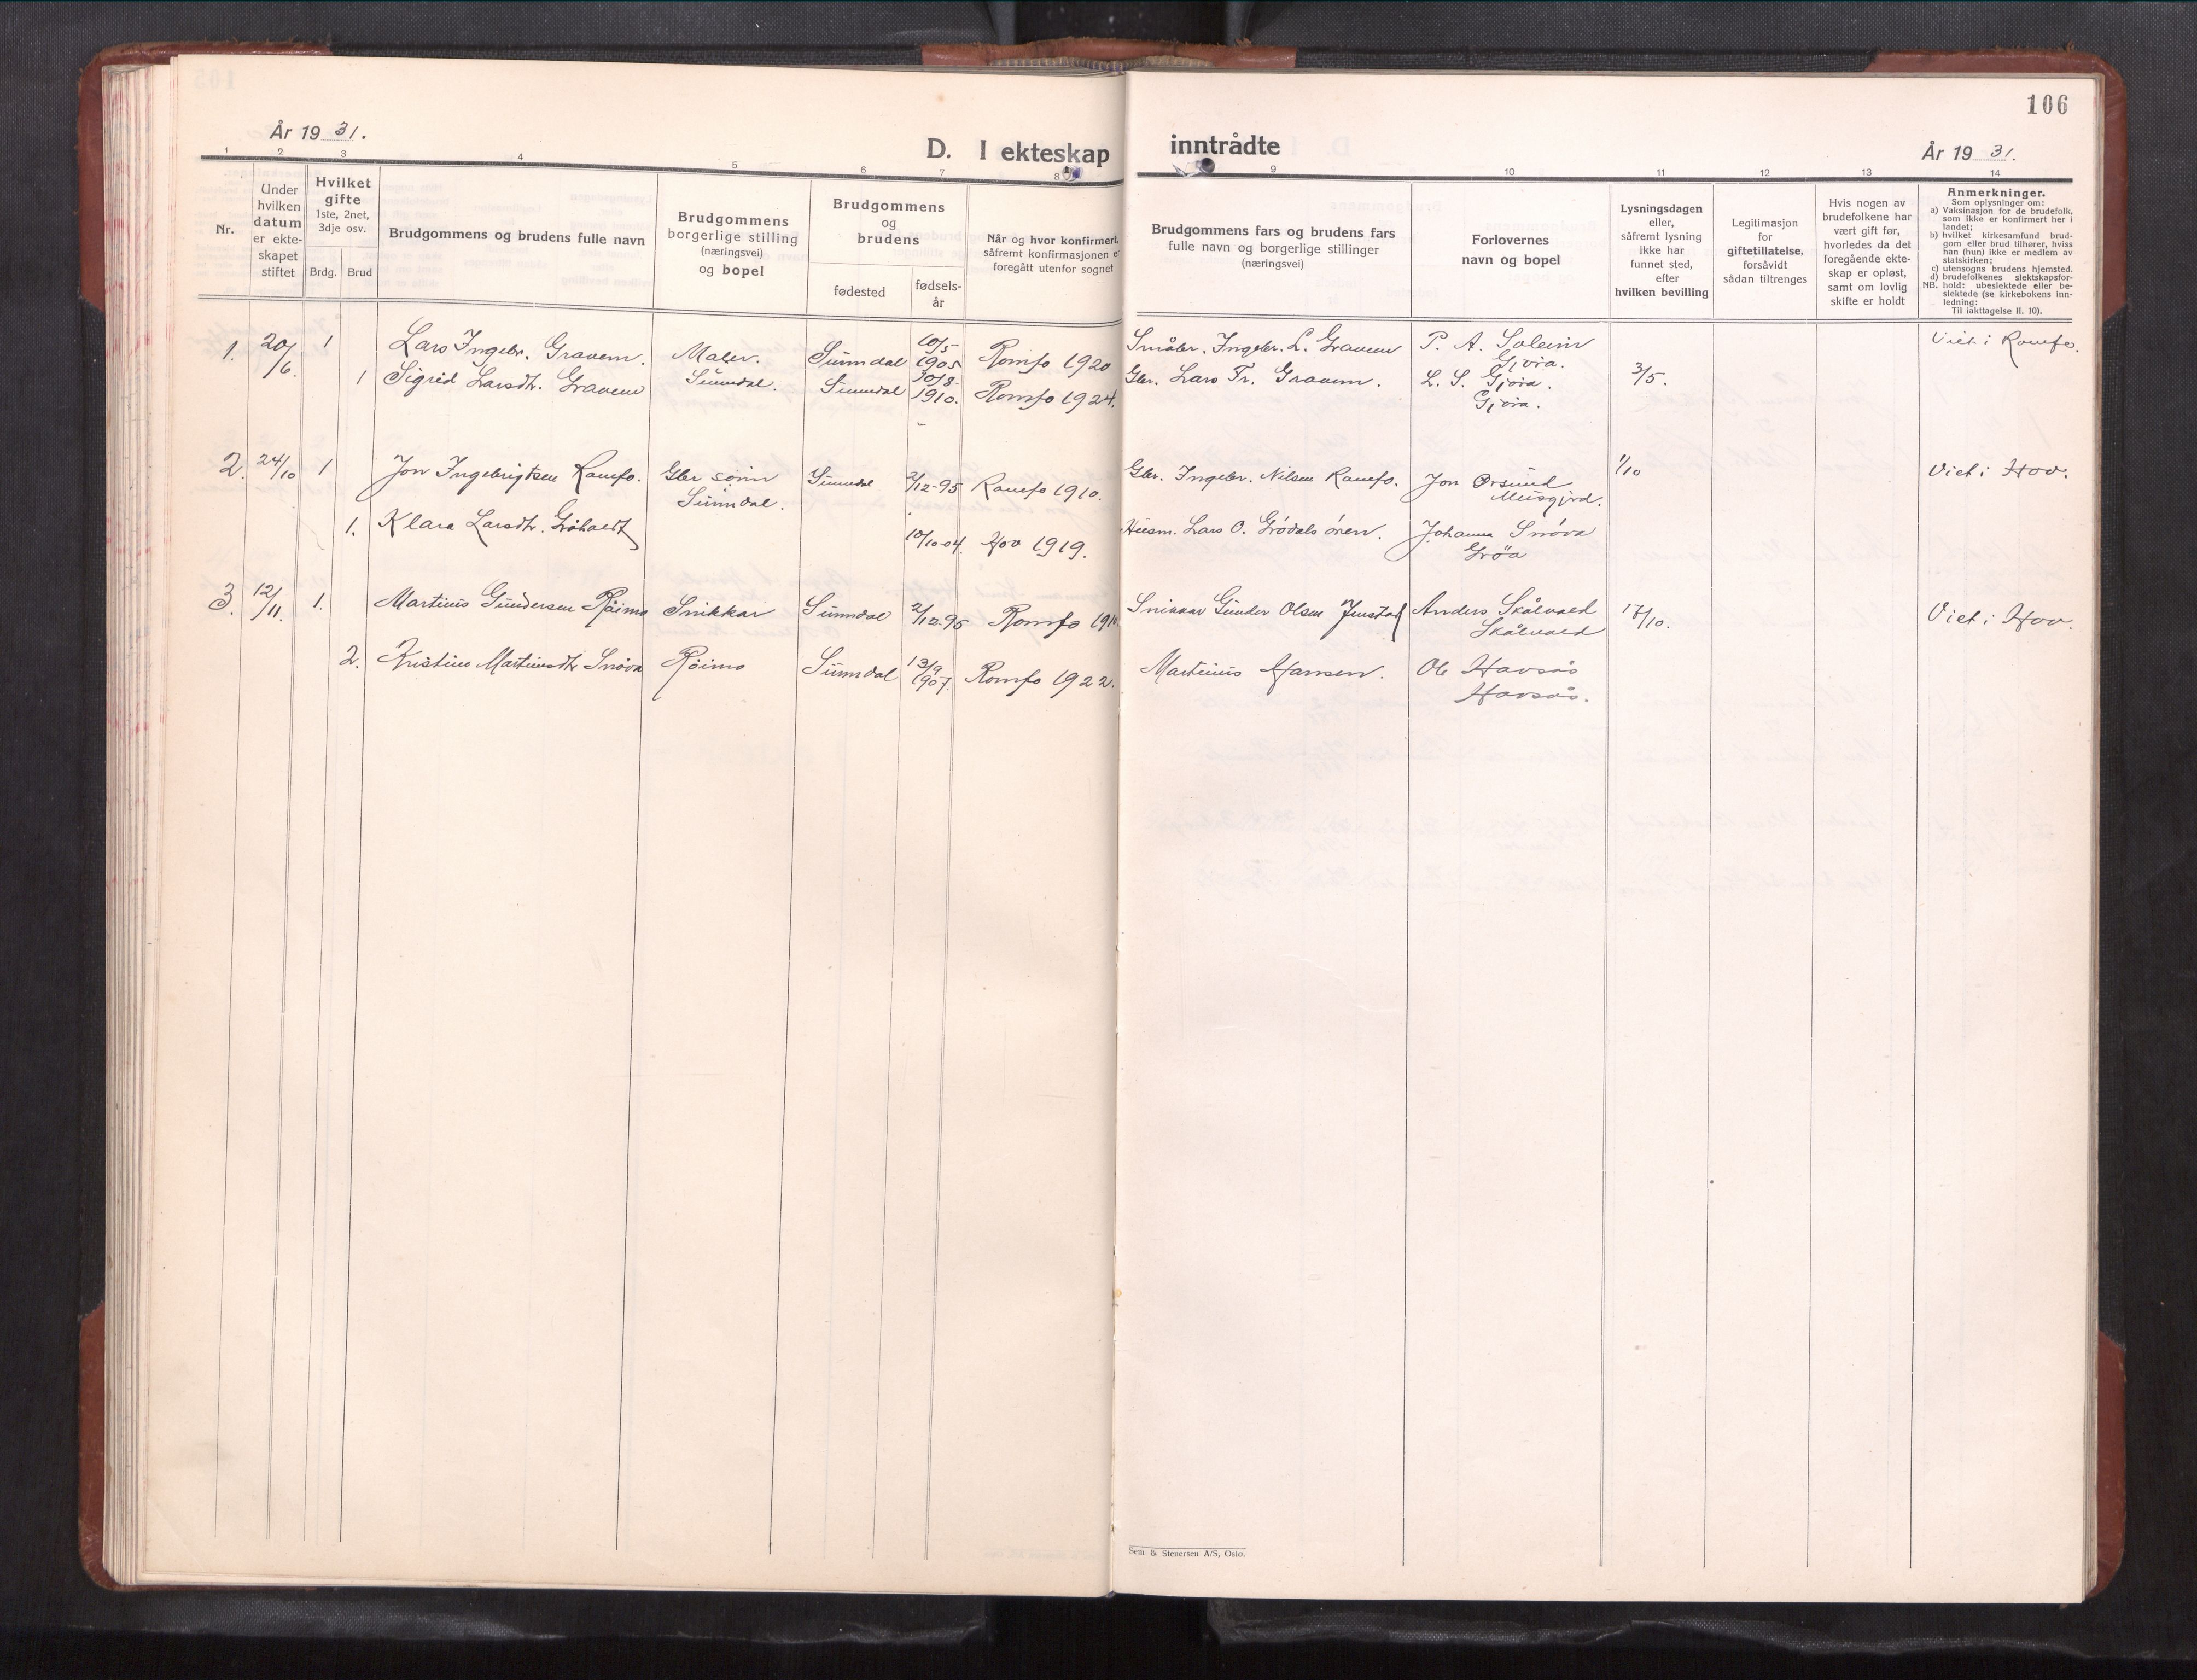 106
År 19 31.
D. I ekteskap inntrådte
År 19 31.
1 2 3 4 5 6 7 8 9 10 11 12 13 14
Nr.
Under
hvilken
datum
er ekte-
skapet
stiftet
Hvilket
gifte
1ste, 2net,
3dje osv.
Brdg. Brud
Brudgommens og brudens fulle navn
Brudgommens
borgerlige stilling
(næringsvei)
og bopel
Brudgommens
og
brudens
fødested
fødsels-
år
Når og hvor konfirmert,
såfremt konfirmasjonen er
foregått utenfor sognet
Brudgommens fars og brudens fars
fulle navn og borgerlige stillinger
(næringsvei)
Forlovernes
navn og bopel
Lysningsdagen
eller,
såfremt lysning
ikke har
funnet sted,
efter
hvilken bevilling
Legitimasjon
for
giftetillatelse,
forsåvidt
sådan tiltrenges
Hvis nogen av
brudefolkene har
vært gift før,
hvorledes da det
foregående ekte-
skap er opløst,
samt om lovlig
skifte er holdt
Anmerkninger.
Som oplysninger om:
a) Vaksinasjon for de brudefolk,
som ikke er konfirmert her i
landet;
b) hvilket kirkesamfund brud-
gom eller brud tilhører, hviss
han (hun) ikke er medlem av
statskirken;
c) utensogns brudens hjemsted.
d) brudefolkenes slektskapsfor-
NB. hold: ubeslektede eller be-
slektede (se kirkebokens inn-
ledning:
Til iakttagelse II. 10).
1. 20/6. 1 Lars Ingebr. Gravem. Maler. Sunndal 10/5 1905 Romfo 1920 Småbr. Ingebr. L. Gravem P. A. Soleim Gjøra. 3/5. Viet i Romfo.
1 Sigrid Larsdtr. Gravem Sunndal. Sunndal 30/8- 1910. Romfo 1924. Gbr. Lars Tr. Gravem. L. S. Gjøra. Gjøra.
2. 24/10 1 Jon Ingebrigtsen Romfo. Gbr sønn Sunndal. Sunndal 2/12-95 Romfo 1910. Gbr. Ingebr. Nilsen Romfo. Jon Musgjrd. 1/10 Viet i Hov.
1. Klara Larsdtr. 10/10-04. Hov 1919. Husm. Lars O. Grødalsøren. Johanna Snøva Grøa
3. 12/11. 1. Martinus Gundersen Røimo Snikkar Sunndal 2/12-95 Romfo 1910 Snikkar Gunder Olsen Jenstad Anders Skålvold Skålvold 17/10. Viet i Hov.
2. Kristine Martinusdtr Snøva Røimo Sunndal 13/9 1907. Romfo 1922. Martinus Hansen. Ole Havsås Havsås.
Sem & Stenersen A/S, Oslo.